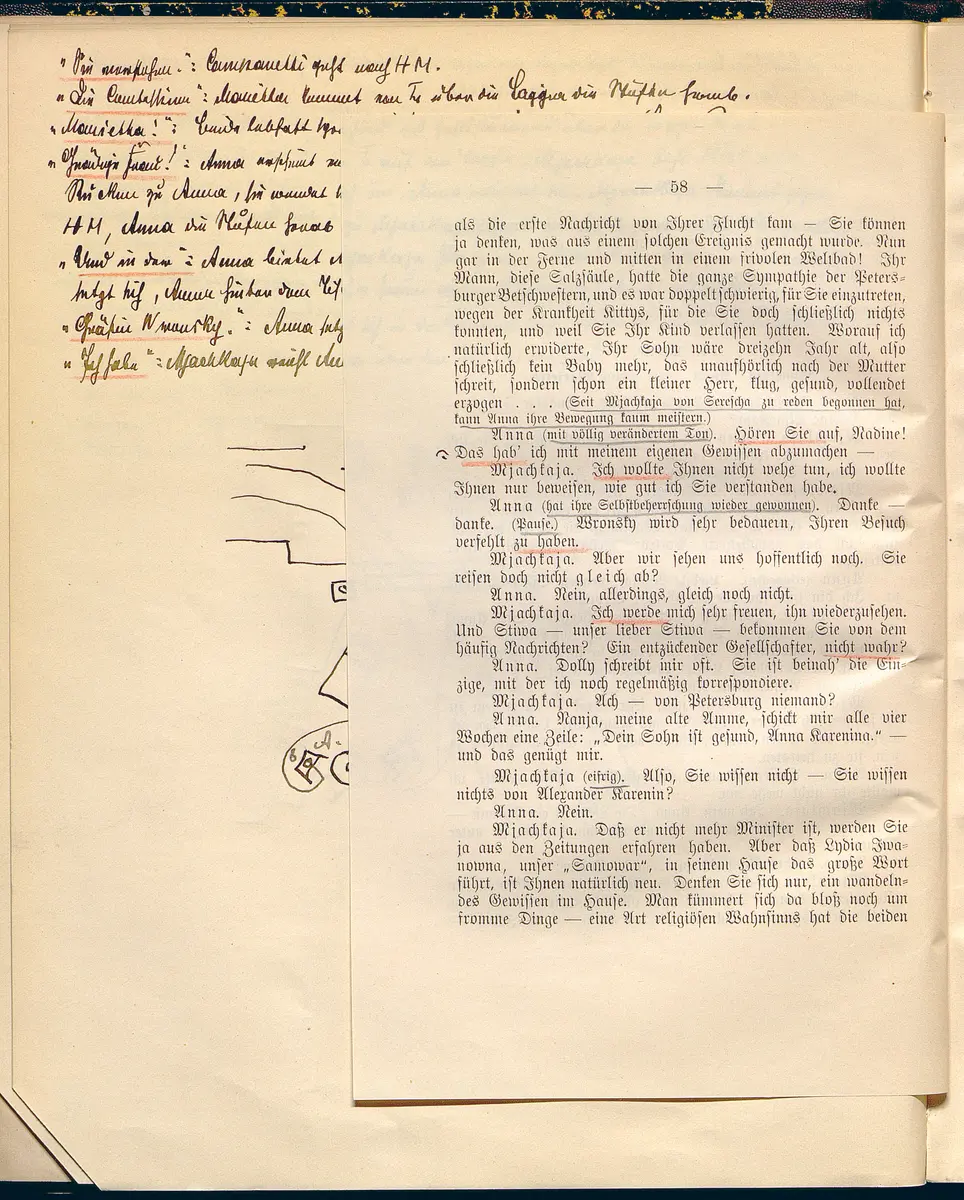 "Sie verstehen.": Campanetti geht nach HM.
"Die Comtessina": Manetta kommt von Te über die Loggia die Stufen herab.
"Marietta!": Beide lebhaft
"Gnädige Frau!": Anna erscheint
Rücken zu Anna, sie wendet
HM, Anna die Stufen herab
"Und in der": Anna bietet
setzt sich, Anna hinter dem
"Gräfin Wronsky.": Anna setzt
"Ich habe": Mjachkaja reicht
A.
— 58 —
als die erste Nachricht von Ihrer Flucht kam — Sie können
ja denken, was aus einem solchen Ereignis gemacht wurde. Nun
gar in der Ferne und mitten in einem frivolen Weltbad! Ihr
Mann, diese Salzsäule, hatte die ganze Sympathie der Peters-
burger Betschwestern, und es war doppelt schwierig, für Sie einzutreten,
wegen der Krankheit Kittys, für die Sie doch schließlich nichts
konnten, und weil Sie Ihr Kind verlassen hatten. Worauf ich
natürlich erwiderte, Ihr Sohn wäre dreizehn Jahr alt, also
schließlich kein Baby mehr, das unaufhörlich nach der Mutter
schreit, sondern schon ein kleiner Herr, klug, gesund, vollendet
erzogen . . . (Seit Mjachkaja von Serescha zu reden begonnen hat,
kann Anna ihre Bewegung kaum meistern.)
Anna (mit völlig verändertem Ton). Hören Sie auf, Nadine!
Das hab' ich mit meinem eigenen Gewissen abzumachen —
Mjachkaja. Ich wollte Ihnen nicht wehe tun, ich wollte
Ihnen nur beweisen, wie gut ich Sie verstanden habe.
Anna (hat ihre Selbstbeherrschung wieder gewonnen). Danke —
danke. (Pause.) Wronsky wird sehr bedauern, Ihren Besuch
verfehlt zu haben.
Mjachkaja. Aber wir sehen uns hoffentlich noch. Sie
reisen doch nicht gleich ab?
Anna. Nein, allerdings, gleich noch nicht.
Mjachkaja. Ich werde mich sehr freuen, ihn wiederzusehen.
Und Stiwa — unser lieber Stiwa — bekommen Sie von dem
häufig Nachrichten? Ein entzückender Gesellschafter, nicht wahr?
Anna. Dolly schreibt mir oft. Sie ist beinah' die Ein-
zige, mit der ich noch regelmäßig korrespondiere.
Mjachkaja. Ach — von Petersburg niemand?
Anna. Nanja, meine alte Amme, schickt mir alle vier
Wochen eine Zeile: „Dein Sohn ist gesund, Anna Karenina.“ —
und das genügt mir.
Mjachkaja (eifrig). Also, Sie wissen nicht — Sie wissen
nichts von Alexander Karenin?
Anna. Nein.
Mjachkaja. Daß er nicht mehr Minister ist, werden Sie
ja aus den Zeitungen erfahren haben. Aber daß Lydia Iwa-
nowna, unser „Samowar“, in seinem Hause das große Wort
führt, ist Ihnen natürlich neu. Denken Sie sich nur, ein wandeln-
des Gewissen im Hause. Man kümmert sich da bloß noch um
fromme Dinge — eine Art religiösen Wahnsinns hat die beiden